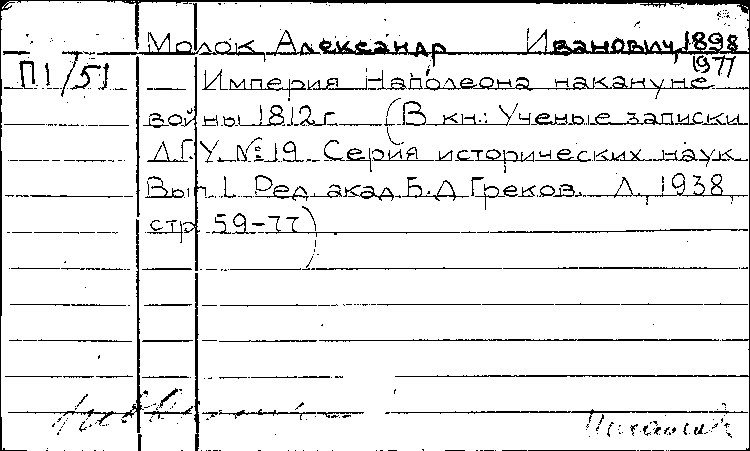 Молок, Александр Иванович, 1898
1977
П1/51 — Империя Наполеона накануне
войны 1812 г. (В кн.: Ученые записки
Л.Г.У. № 19. Серия исторических наук
Вып. 1. Ред. акад. Б.Д. Греков. Л., 1938,
стр. 59-77).